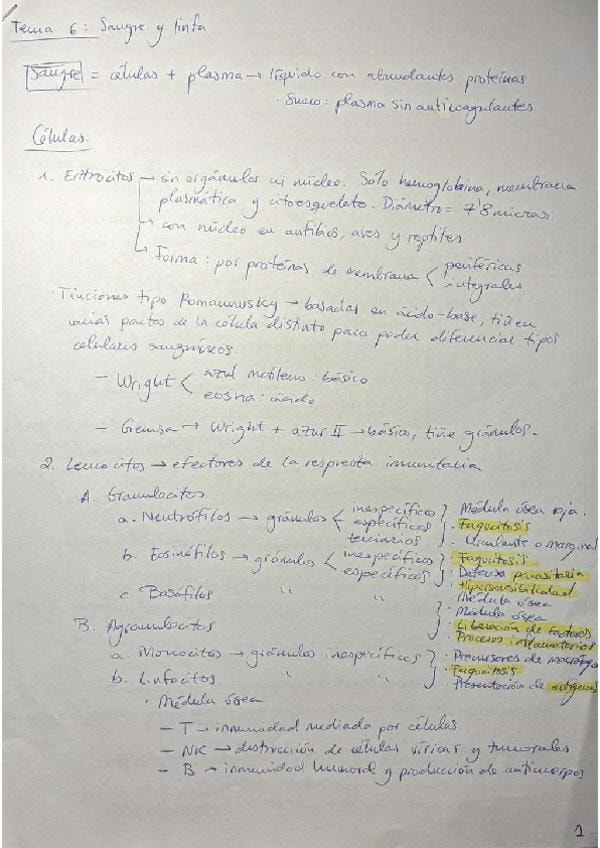 Tema 6: Sangre y linfa
Sangre = células + plasma → líquido con abundantes proteínas
· Suero: plasma sin anticoagulantes
Células:
1. Eritrocitos → sin orgánulos ni núcleo. Sólo hemoglobina, membrana
plasmática y citoesqueleto. Diámetro = 7'8 micras.
→ con núcleo en anfibios, aves y reptiles
→ Forma: por proteínas de membrana < periféricas
integrales
· Tinciones tipo Romanowsky → basadas en ácido-base, tiñen
varias partes de la célula distinto para poder diferenciar tipos
celulares sanguíneos.
- Wright < azul metileno: básico
eosina: ácido
- Giemsa → Wright + azur II → básico, tiñe gránulos.
2. Leucocitos → efectores de la respuesta inmunitaria
A. Granulocitos
a. Neutrófilos → gránulos < inespecíficos } · Médula ósea roja.
específicos · Fagocitosis
terciarios · Circulante o marginal
b. Eosinófilos → gránulos < inespecíficos } · Fagocitosis
específicos · Defensa parasitaria
· Hipersensibilidad
· Médula ósea
c. Basófilos " " } · Médula ósea
· Liberación de factores
· Procesos inflamatorios
B. Agranulocitos
a. Monocitos → gránulos inespecíficos } · Precursores de
b. Linfocitos " " · Fagocitosis
· Presentación de antígenos
· Médula ósea
- T → inmunidad mediada por células
- NK → destrucción de células víricas y tumorales
- B → inmunidad humoral y producción de anticuerpos
1